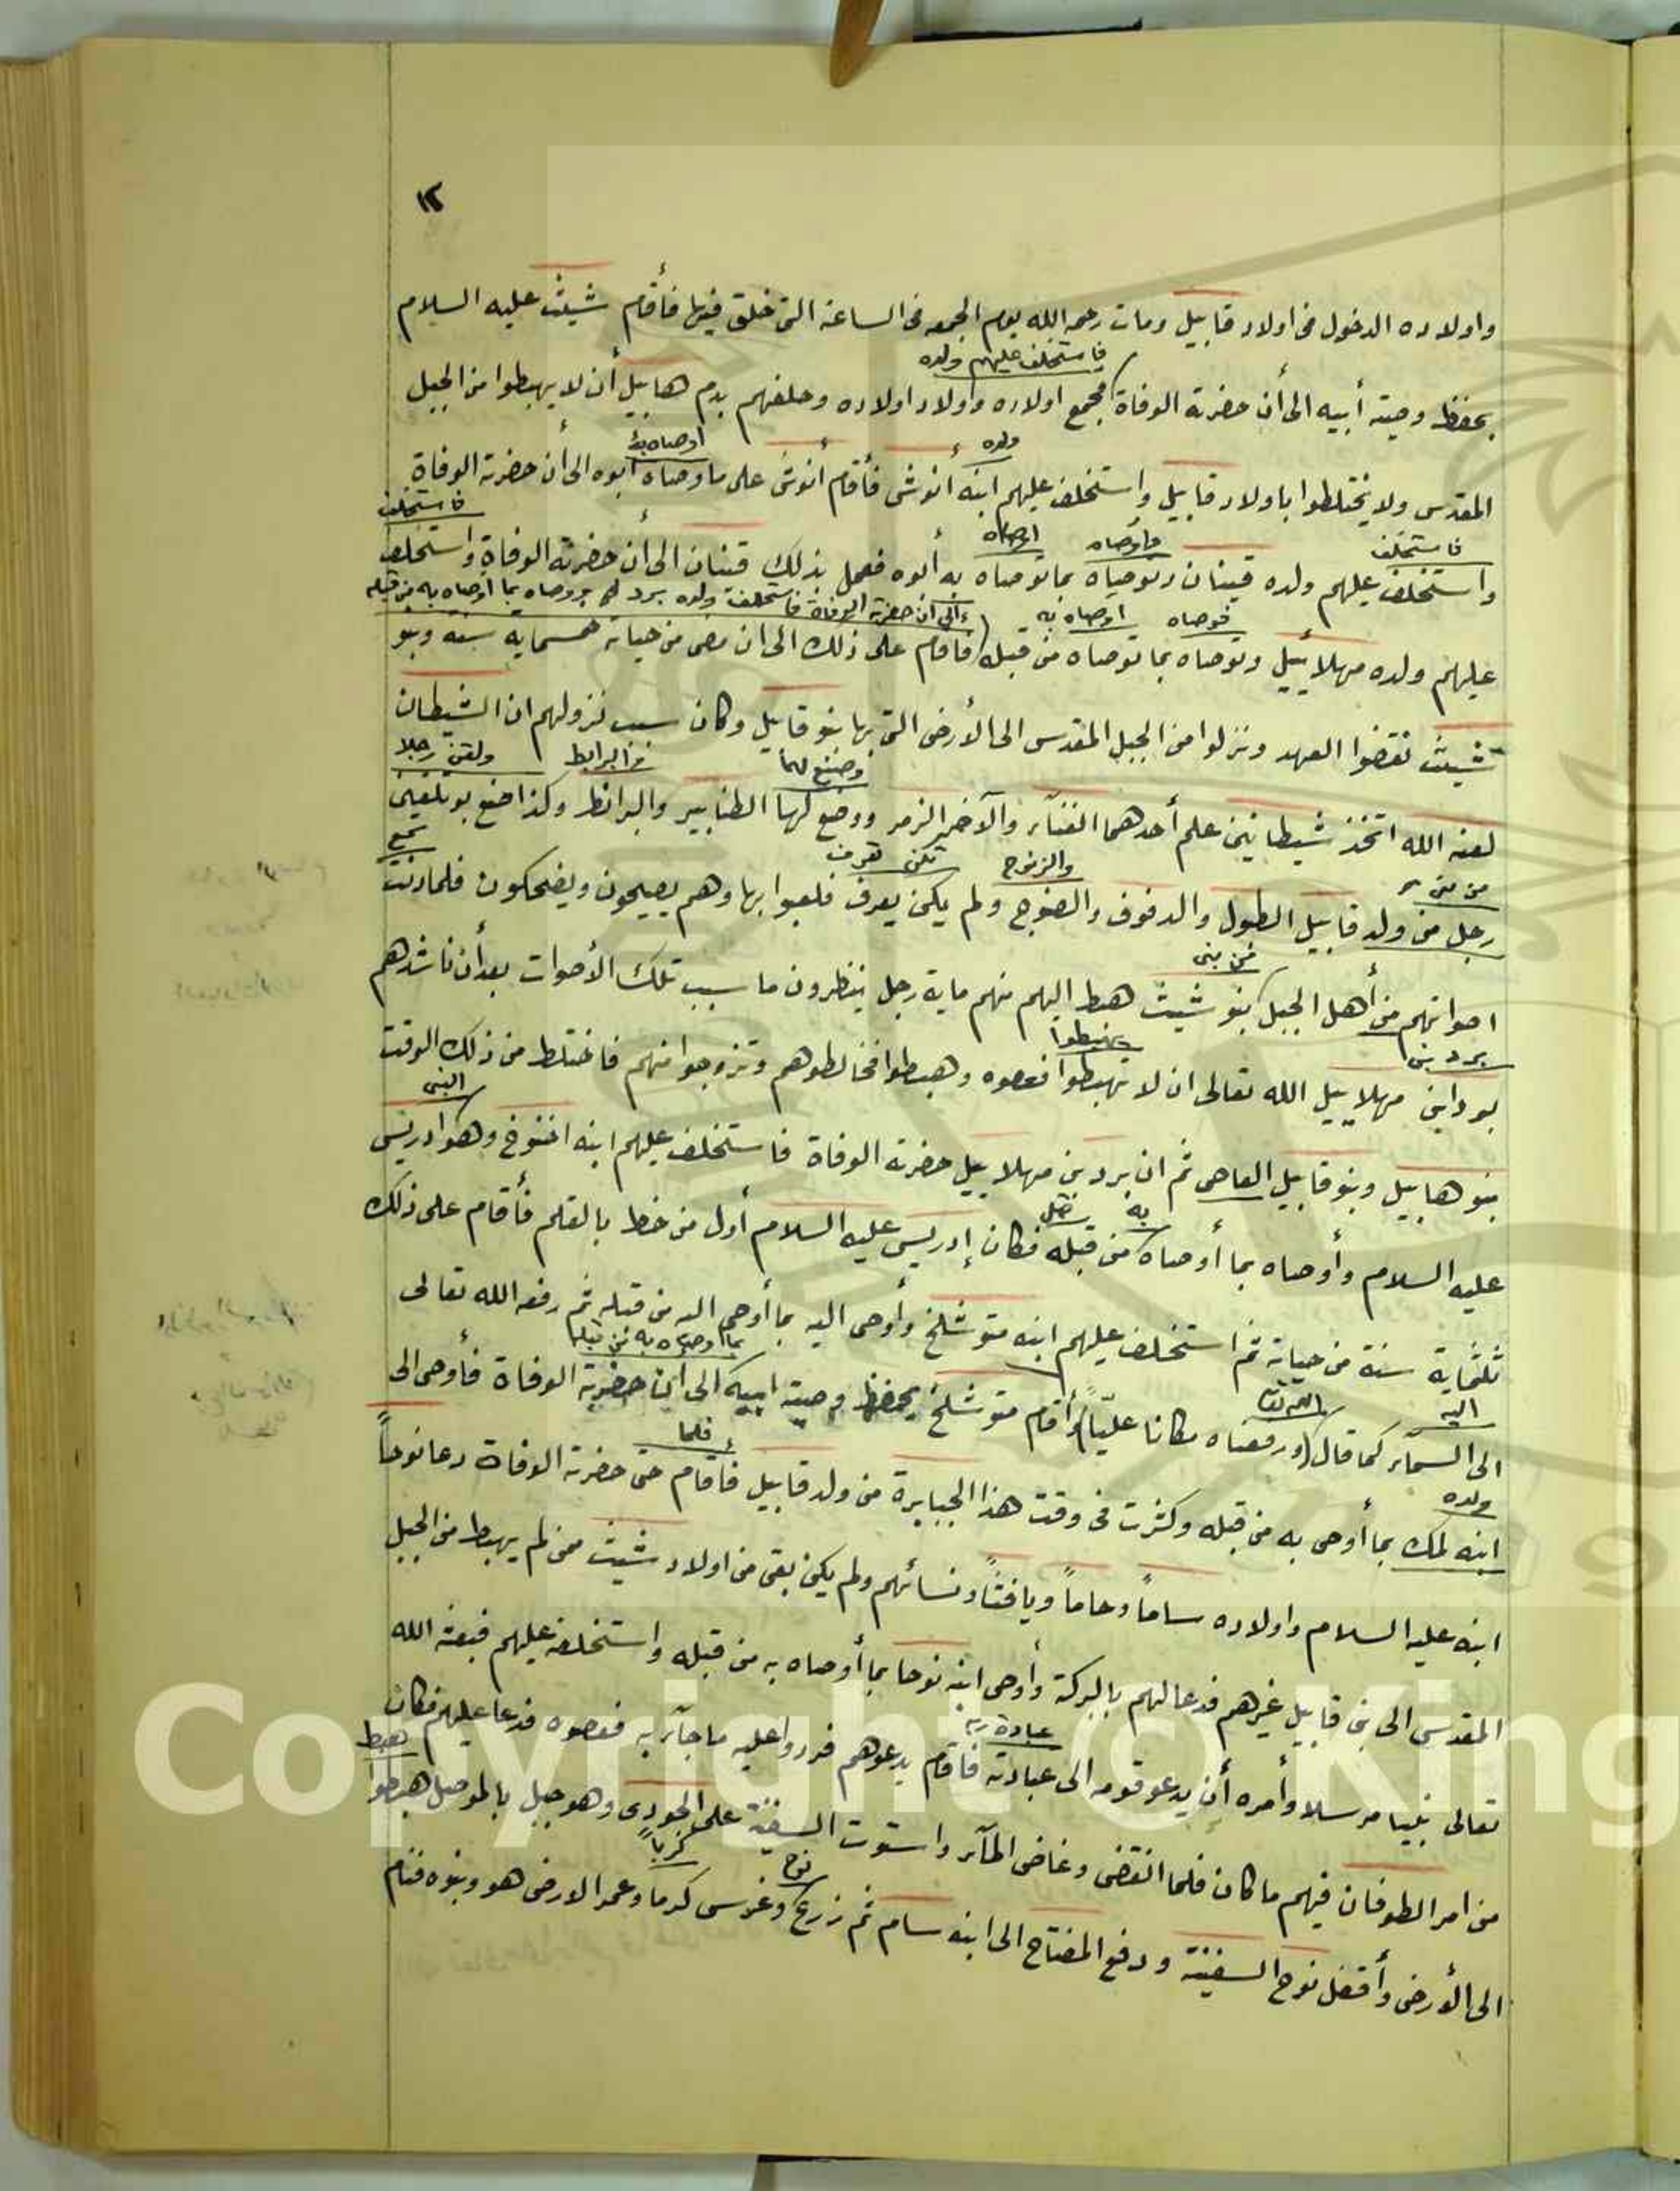 ١٢
واولاده الدخول فى اولاد قابيل ومات رحمه الله يوم الجمعه فى الساعة التى خلق فيها فأقام شيث عليه السلام
فاستخلف عليهم ولده
بحفظ وصية أبيه الى أن حضرته الوفاة فجمع اولاده واولاد اولاده وحلفهم بدم هابيل أن لا يهبطوا من الجبل
ولده اوصاه به
المقدس ولا يختلطوا باولاد قابيل واستخلف عليهم ابنه أنوش فأقام أنوش على ما وصاه ابوه الى أن حضرته الوفاة
فاستخلف وأوصاه اوصاه فاستخلف
واستخلف عليهم ولده قينان وتوصياه بما توصاه به أبوه فعمل بذلك قينان الى أن حضرته الوفاة واستخلف
فوصاه اوصاه به الى ان حضرته الوفاة فاستخلف ولده يرد ووصاه بما اوصاه به من قبله
عليهم ولده مهلاييل وتوصاه بما توصاه من قبله فاقام على ذلك الى ان مضى من حياته خمسماية سنه وبنو
شيث نقضوا العهد ونزلوا من الجبل المقدس الى الأرض التى بها بنو قابيل وكان سبب نزولهم ان الشيطان
وصنع لهما والبرابط ولقن رجلا
لعنه الله اتخذ شيطانين علم أحدهما الغنآء والآخر الزمر ووضع لهما الطنابير والبرابط وكذا صنع بو تلقين
من بنى والزنوج تكن تعرف سمع
رجل من ولد قابيل الطبول والدفوف والصنوج ولم يكن يعرف فلعبوا بها وهم يصيحون ويضحكون فلما دنت
من بنى
اصواتهم من أهل الجبل بنو شيث هبط اليهم منهم ماية رجل ينظرون ما سبب تلك الأصوات بعد أن ناشدهم
يرد بن يهبطوا
يرد ابن مهلاييل الله تعالى ان لا تهبطوا فعصوه وهبطوا فخالطوهم وتزوجوا منهم فاختلط من ذلك الوقت
النبى
بنو هابيل وبنو قابيل العاصى ثم ان يرد بن مهلاييل حضرته الوفاة فاستخلف عليهم ابنه اخنوخ وهو ادريس
به
عليه السلام وأوصاه بما أوصاه من قبله فكان إدريس عليه السلام أول من خط بالقلم فأقام على ذلك
ثلثماية سنة من حياته ثم استخلف عليهم ابنه متوشلخ وأوصى اليه بما أوصى اليه من قبله ثم رفعه الله تعالى
اليه الله تعالى بما اوصاه به من قبله
الى السمآء كما قال ورفعناه مكانا عليّاً وأقام متوشلخ يحفظ وصية ابيه الى أن حضرته الوفاة فأوصى الى
ولده فلما
ابنه لمك بما أوصى به من قبله وكثرت فى وقت هذا الجبابرة من ولد قابيل فأقام حتى حضرته الوفاة دعا نوحاً
ابنه عليه السلام واولاده ساماً وحاماً ويافثاً ونسائهم ولم يكن بقى من اولاد شيث ممن لم يهبط من الجبل
المقدس الى بنى قابيل غيرهم فدعا لهم بالبركة وأوصى ابنه نوحا بما أوصاه به من قبله واستخلفه عليهم فبعثه الله
عبادة ربه
تعالى نبيا مرسلا وأمره أن يدعو قومه الى عبادته فأقام يدعوهم فردوا عليه ما جآء به فعصوه فدعا عليهم فكان
هبط
من امر الطوفان فيهم ما كان فلما انقضى وغاض المآء واستوت السفينة على الجودى وهو جبل بالموصل هبطوا
نوح كرماً
الى الأرض وأقفل نوح السفينة ودفع المفتاح الى ابنه سام ثم زرع وغرس كرما وعمر الارض هو وبنوه فنام
Copyright © King